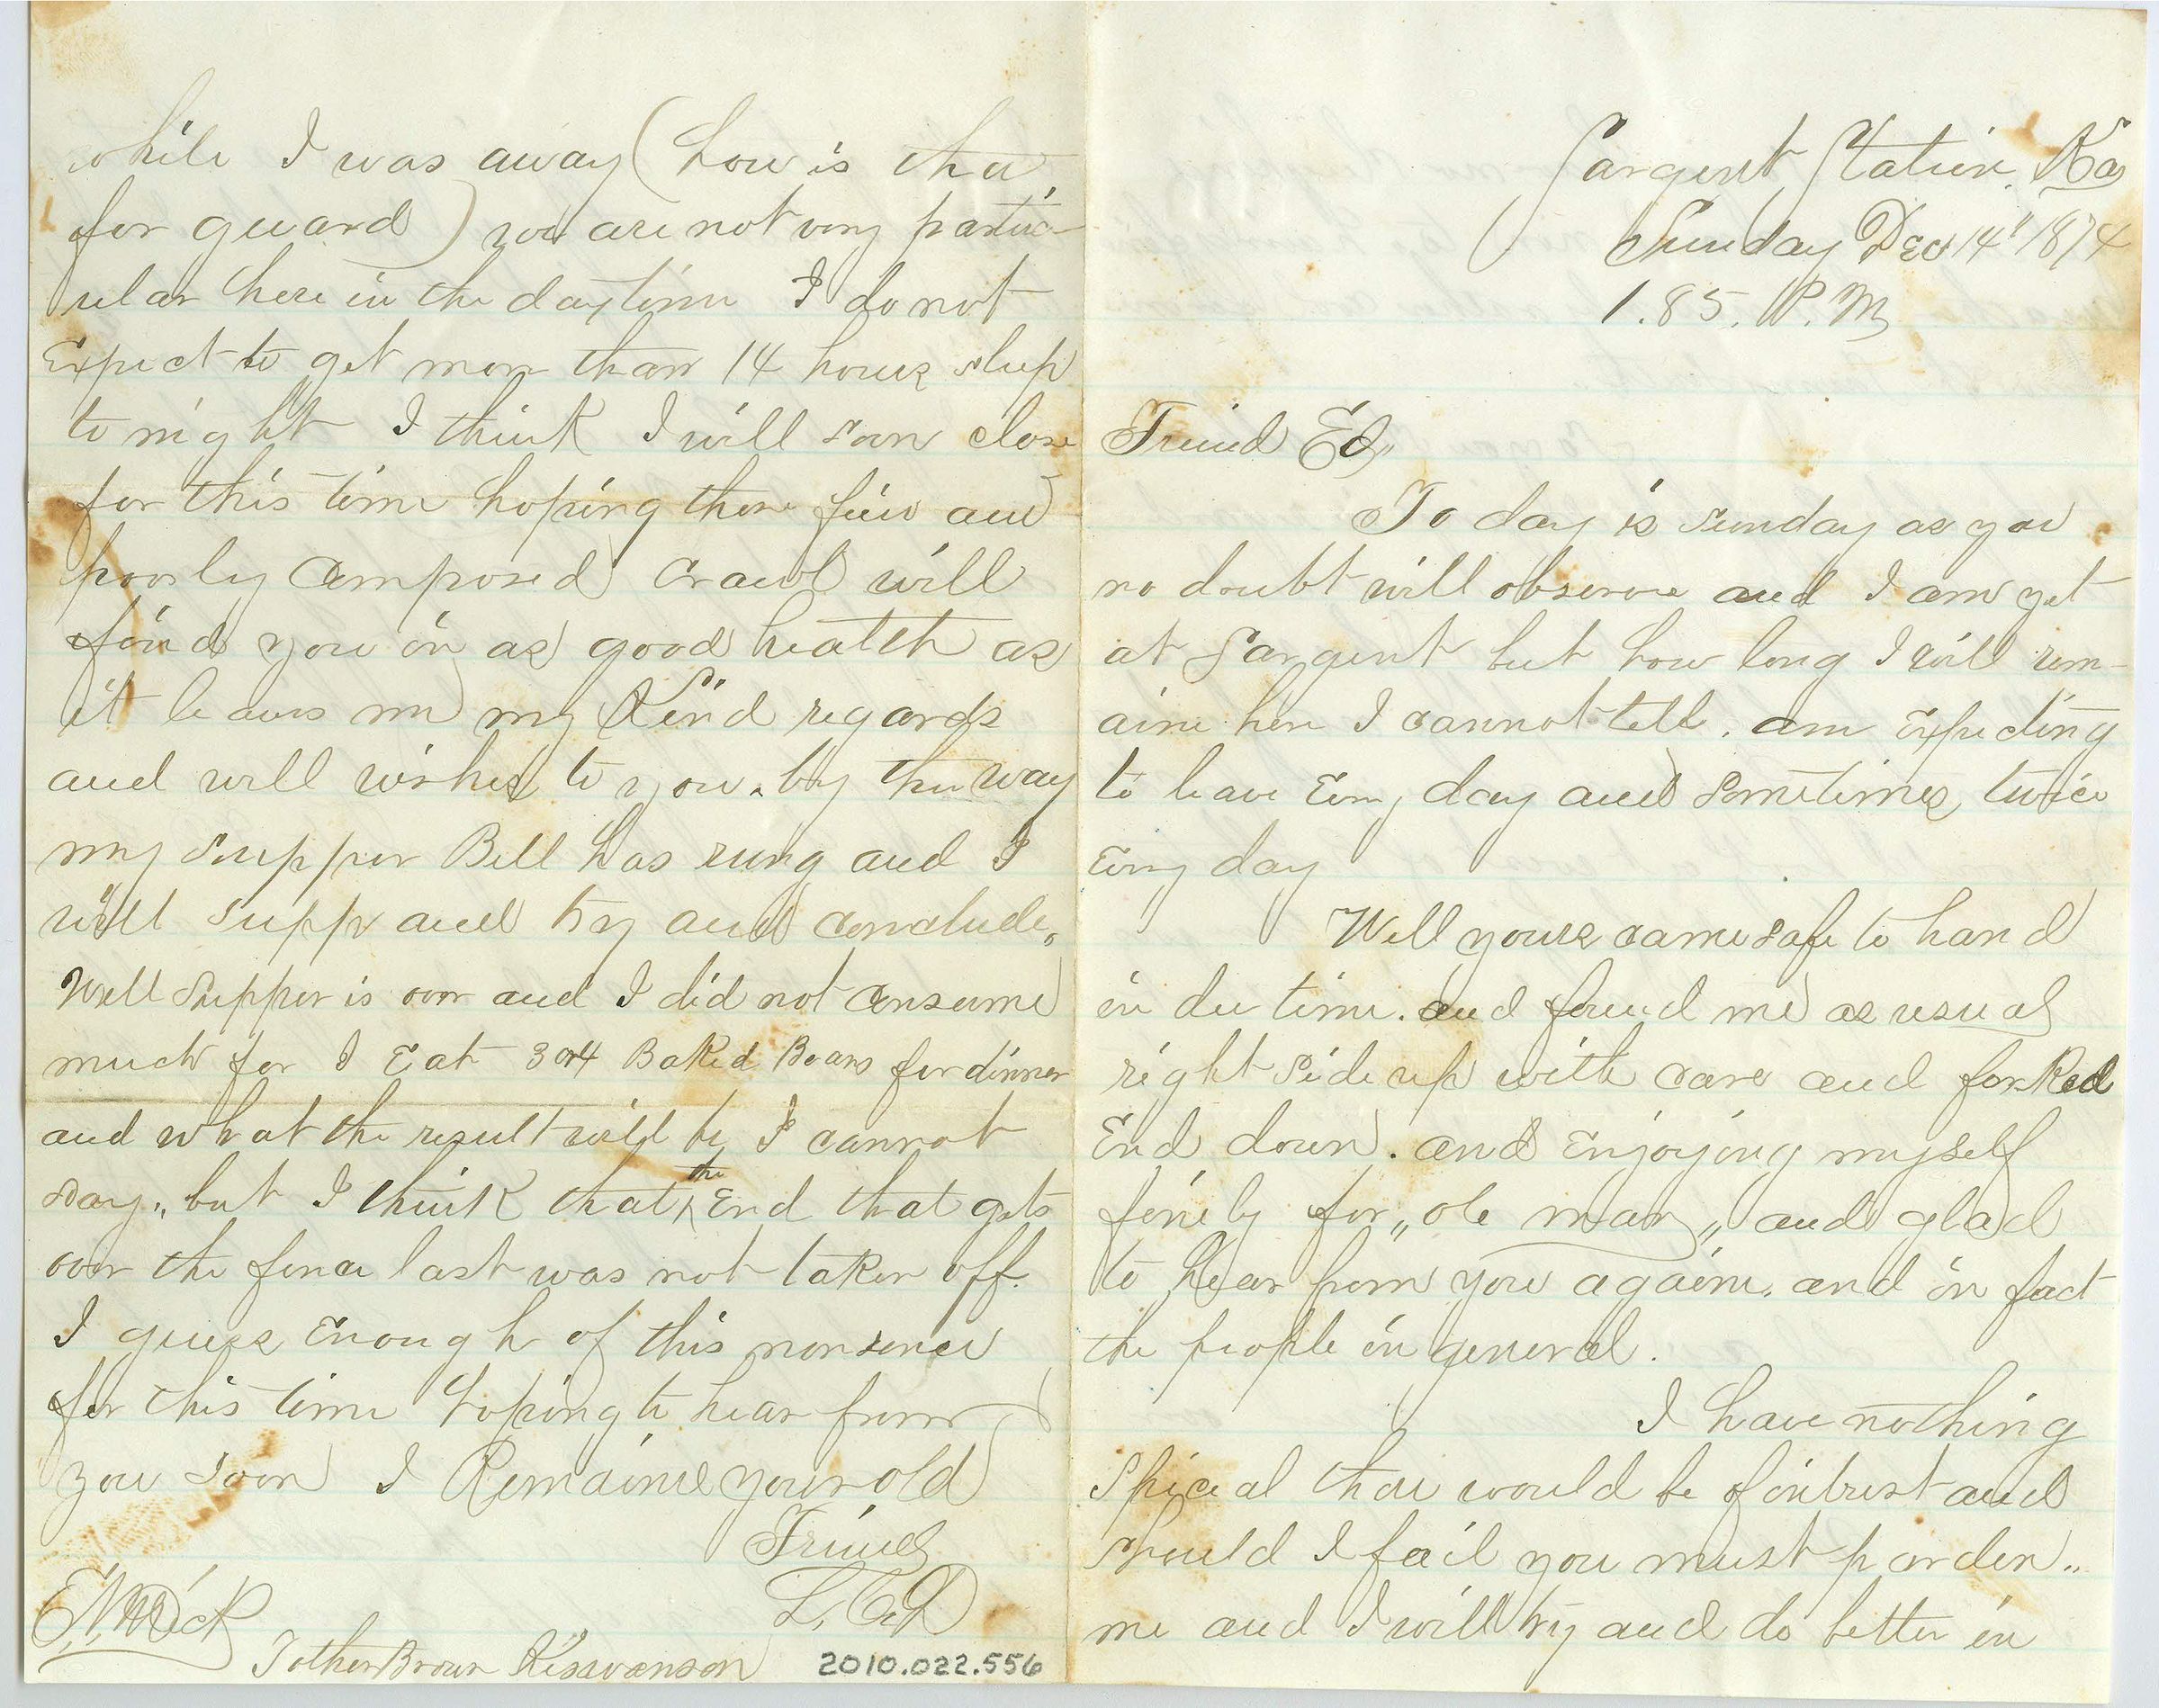 Sargent Station, Ka
Sunday Dec 14" 1874
1.85. P.M
Friend Ed,,
To day is Sunday as you
no doubt will observe and I am yet
at Sargent but how long I will rem-
aine here I cannot tell. am Expecting
to leave Evry day and Sometimes twice
Evry day
Well yours came safe to hand
in due time. and found me as usual
right side up with care and forked
End down. and Enjoying myself
finely for „ole man„ and glad
to hear from you againe. and in fact
the people in general.
I have nothing
Speceal that would be of intrest and
Should I fail you must parden„
me and I will try and do better in
while I was away (how is tha
for guard) we are not very partic-
ular here in the daytime I do not
Expect to get more than 14 hours sleep
to night I think I will soon close
for this time hoping these few and
poorly Composed crawl will
find you in as good health as
it leaves me my Kind regards
and well wishes to you. by the way
my Supper Bell has rung and I
will supp and try and conclude„
Well Supper is over and I did not consume
much for I Eat 3 or 4 Baked Beans for dinner
and what the result will be I cannot
say„ but I think that the End that gets
over the fence last was not taken off.
I guess Enough of this nonsence
for this time hoping to hear from
you soon I Remaine your old
Friend
L.
Tother Brown
2010.022.556